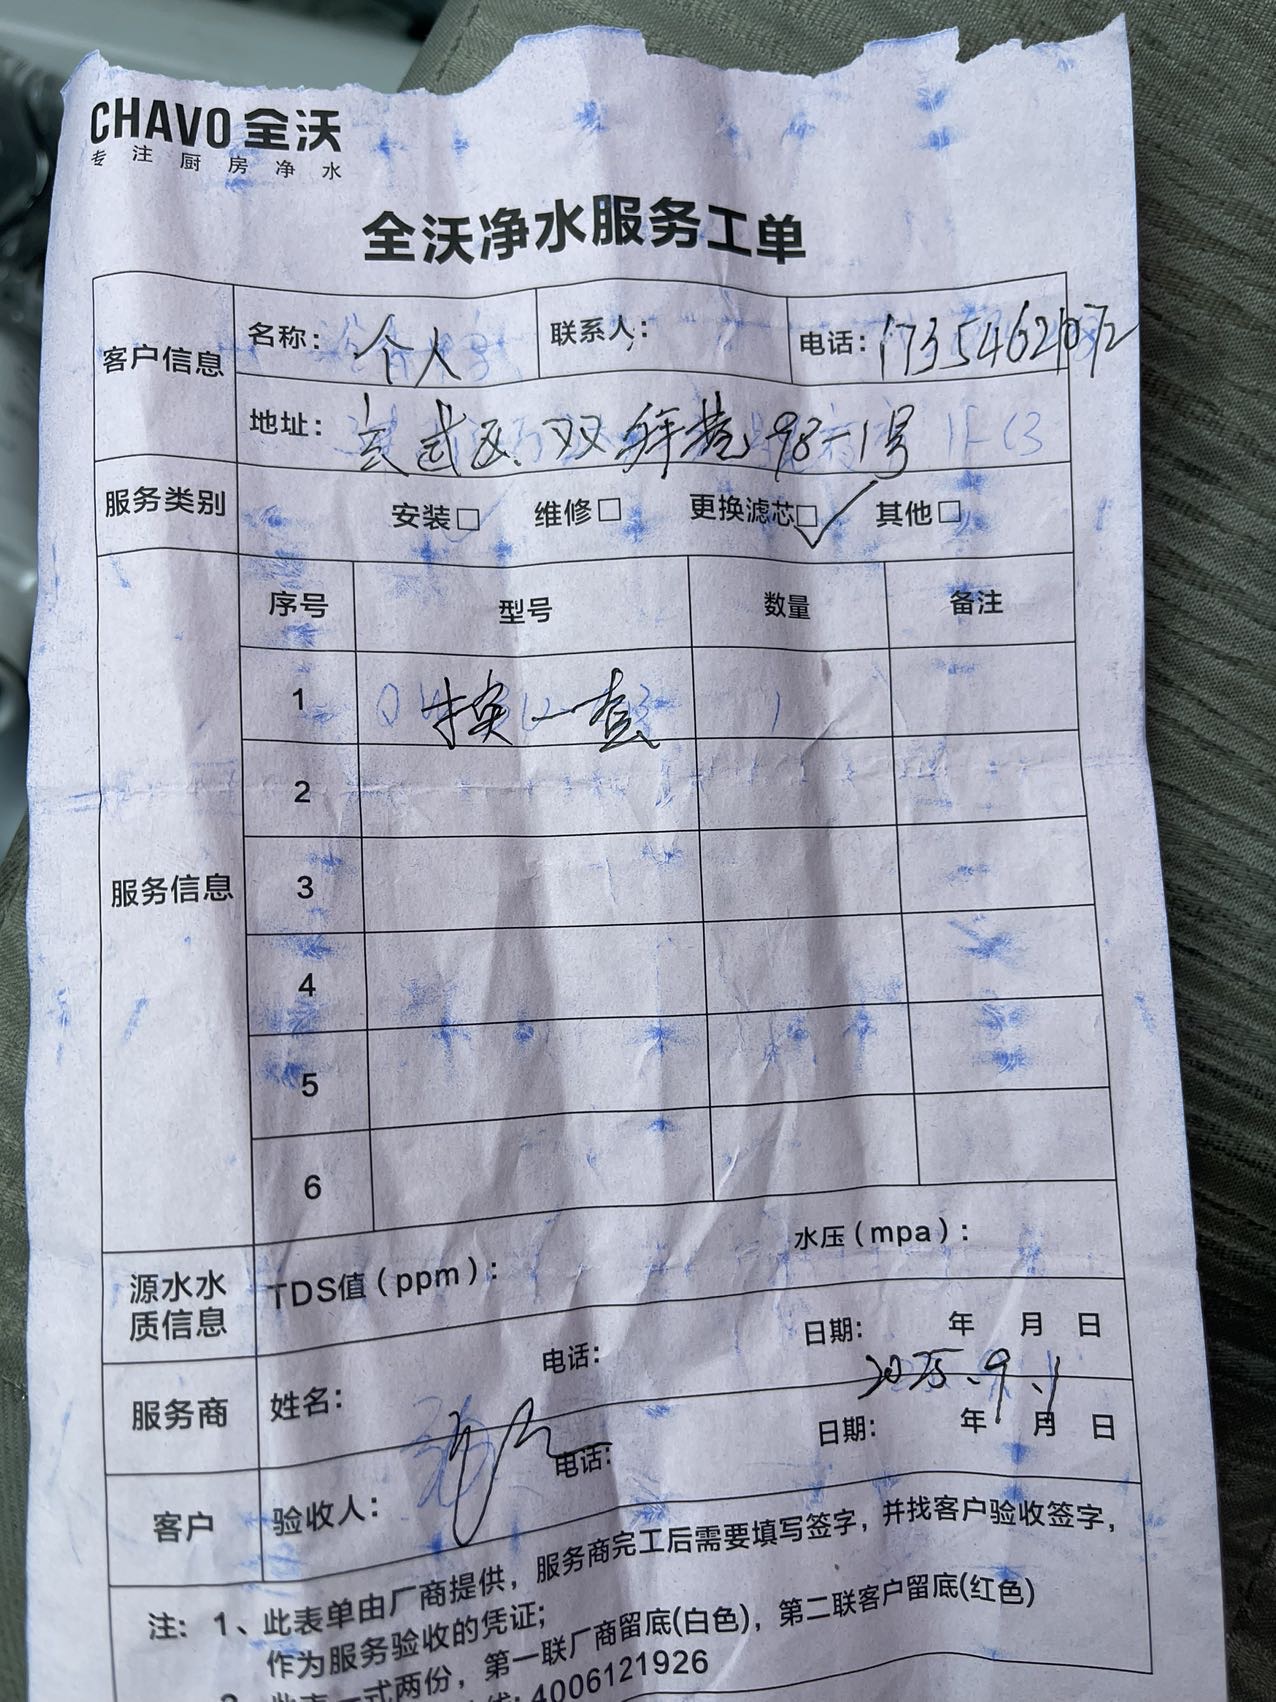 CHAVO 全沃
专注厨房净水
全沃净水服务工单
客户信息 名称: 个人 联系人: 电话: 17354621072
地址: 玄武区、双拜巷98-1号
服务类别 安装□ 维修□ 更换滤芯□✓ 其他□
服务信息 序号 型号 数量 备注
1 换一套
2
3
4
5
6
源水水质信息 TDS值(ppm): 水压(mpa):
服务商 姓名: 电话: 日期: 年 月 日
2025.9.1
客户 验收人: 电话: 日期: 年 月 日
注: 1、此表单由厂商提供，服务商完工后需要填写签字，并找客户验收签字，
作为服务验收的凭证；
此表一式两份，第一联厂商留底(白色)，第二联客户留底(红色)
线: 4006121926